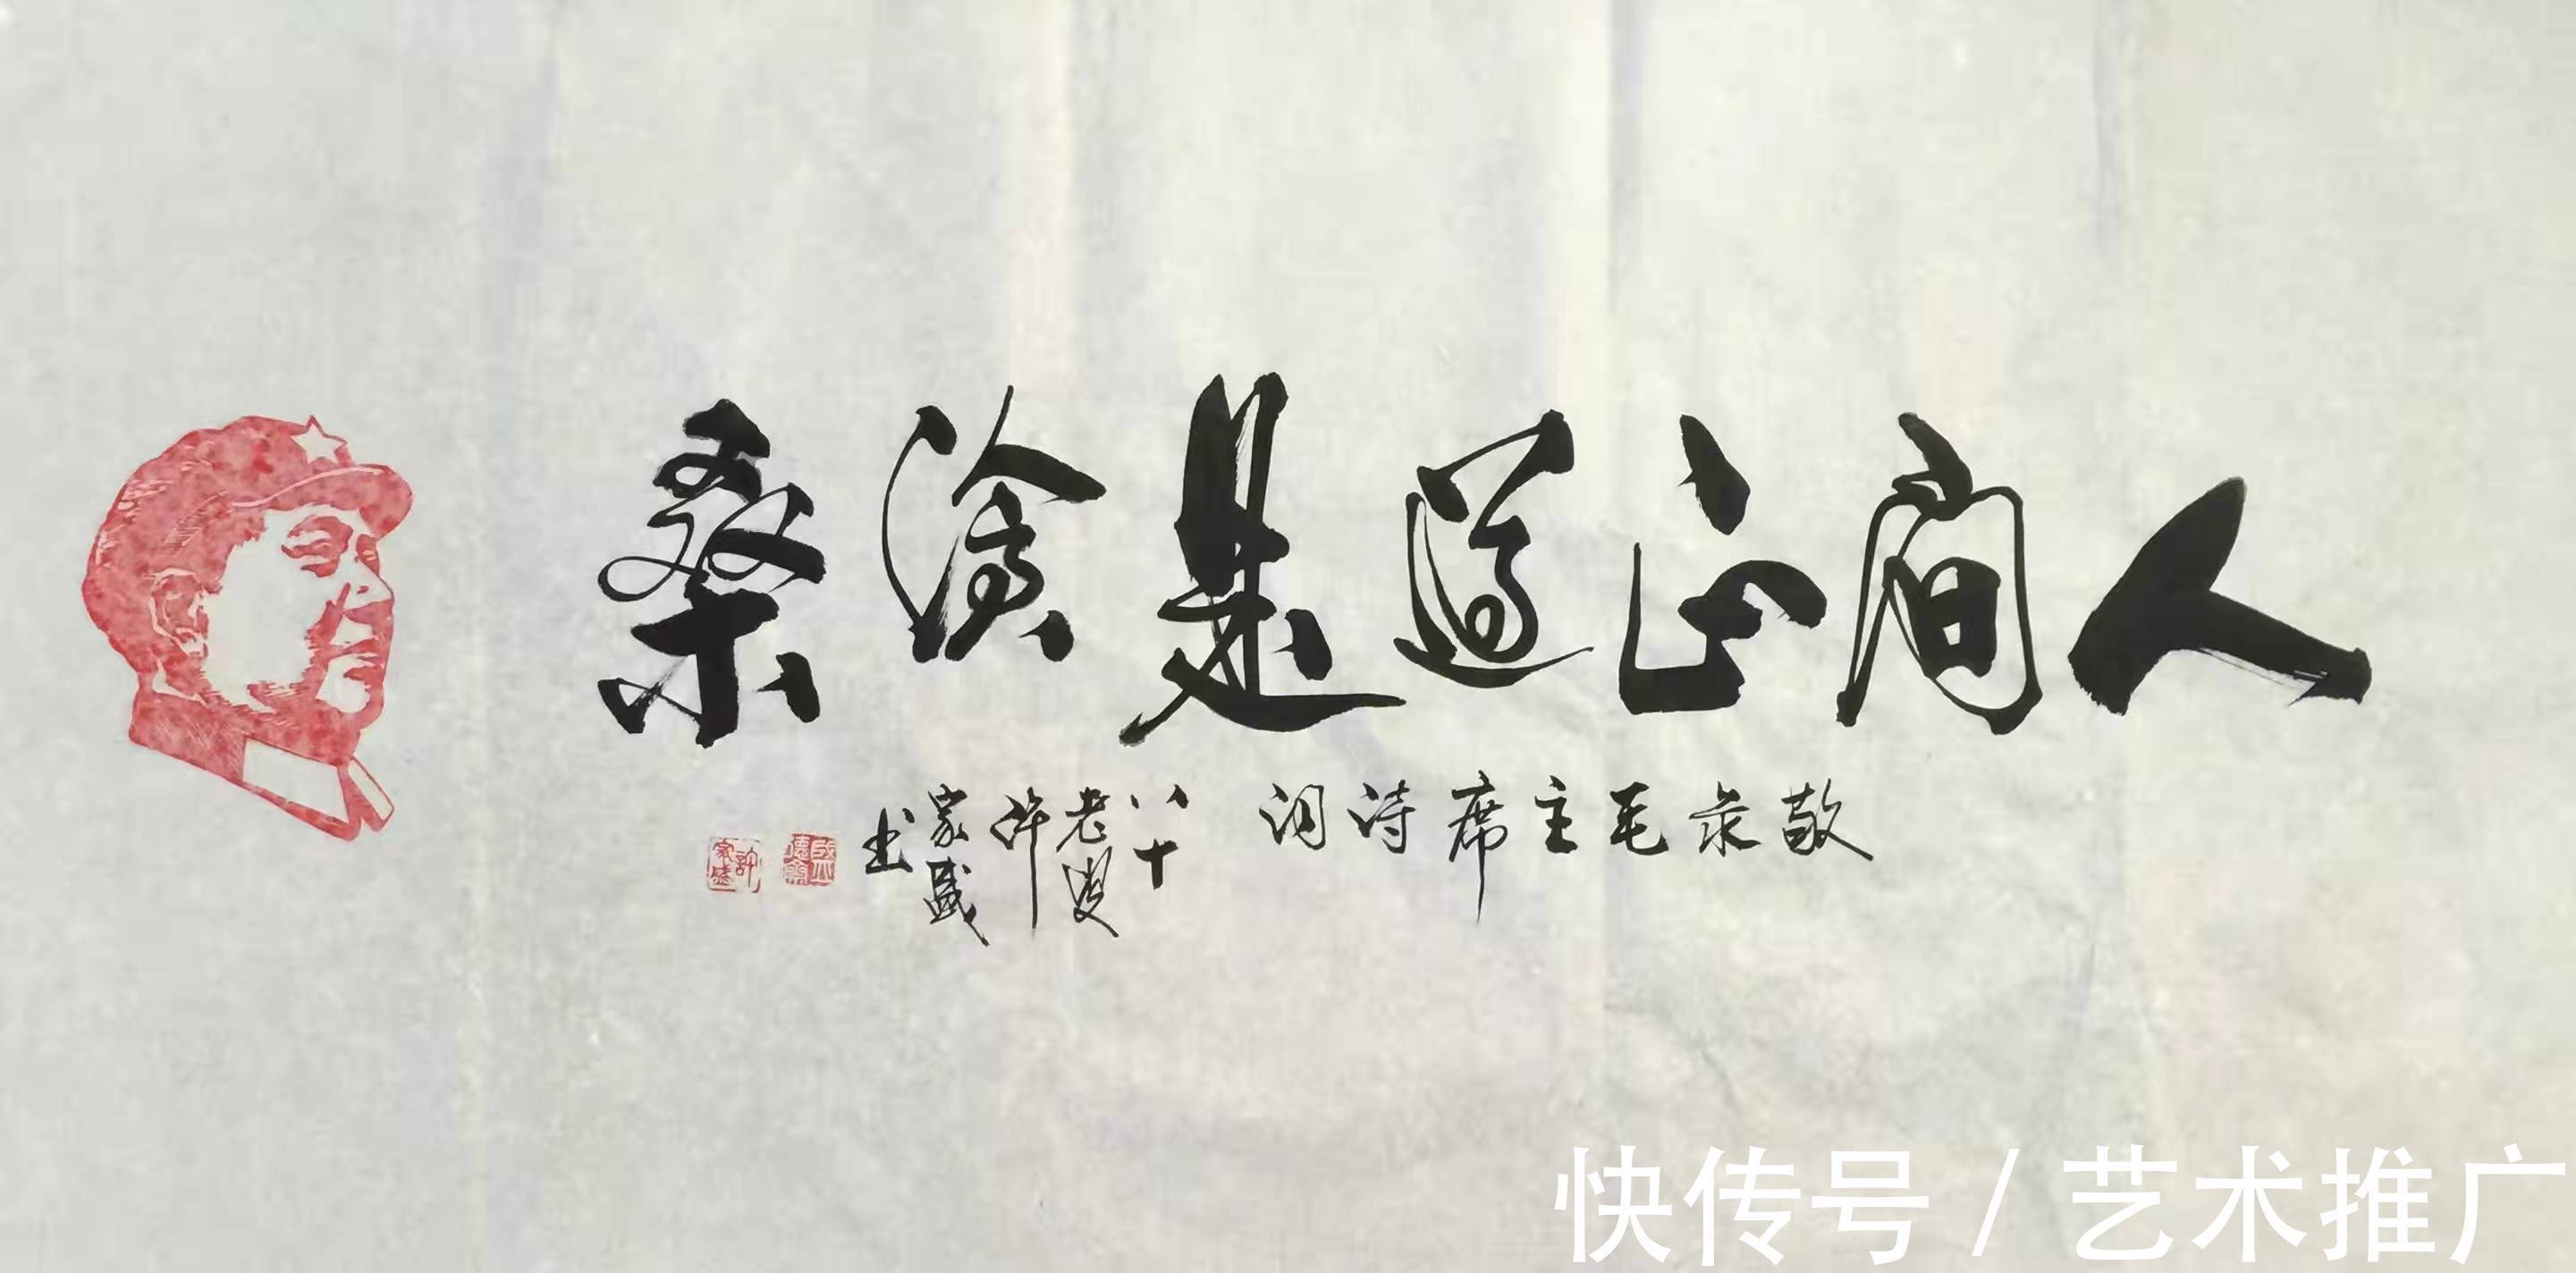 人间正道是滄桑
敬录毛主席诗词
八十
老叟
许
家盛
书
许家盛
快传号 / 艺术推广